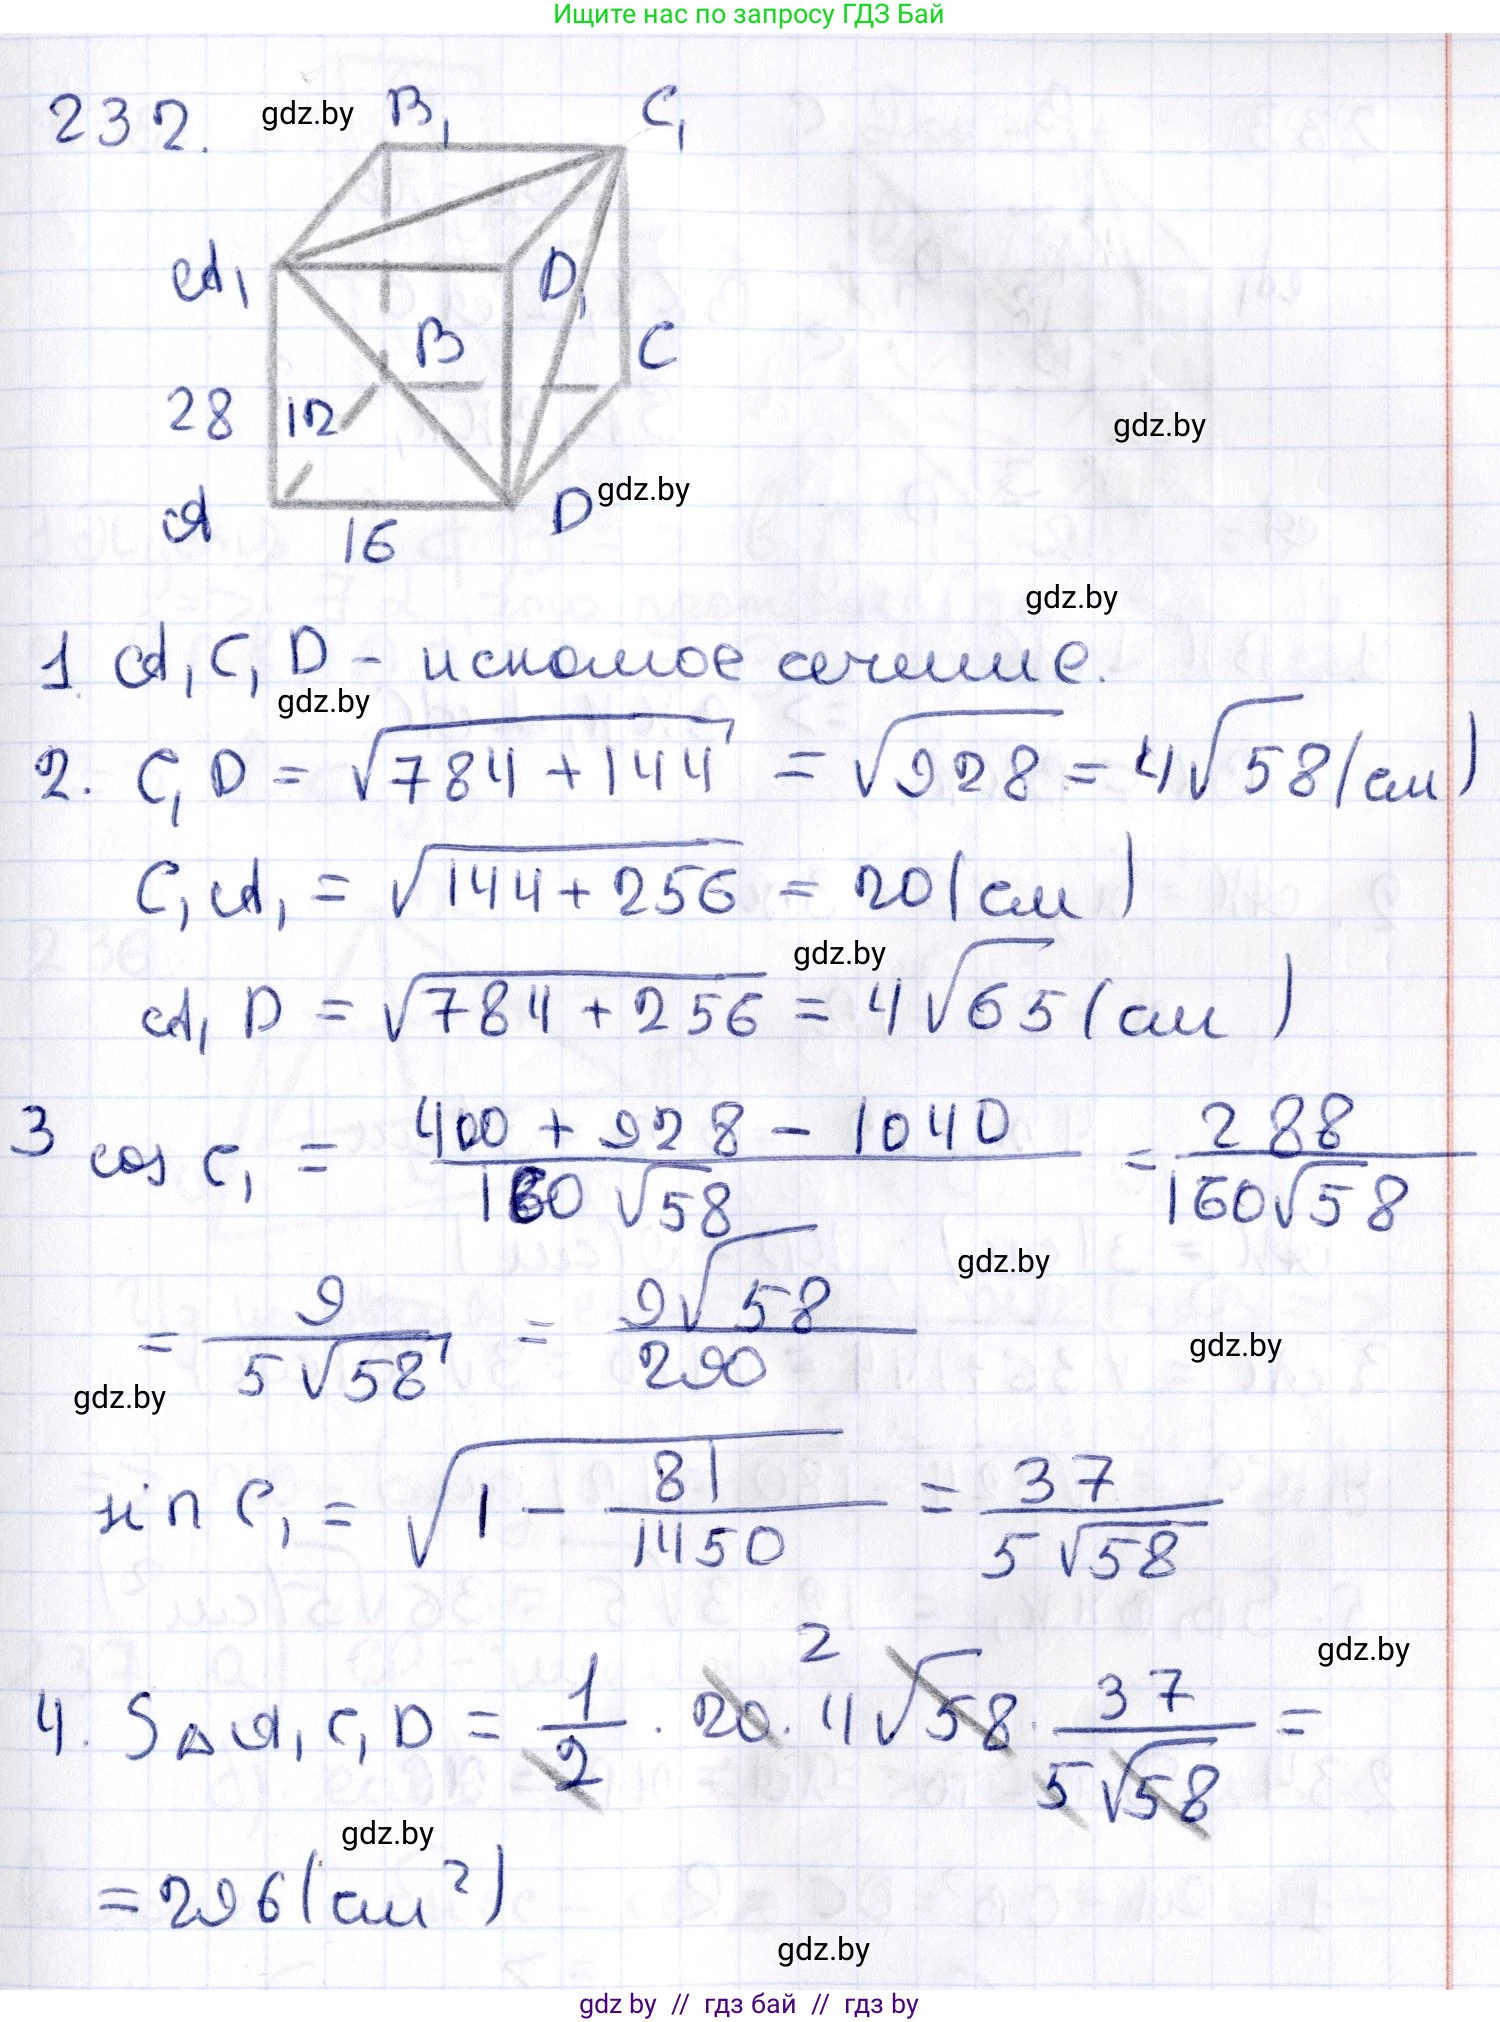 Ищите нас по запросу ГДЗ Бай
232.
gdz.by
B₁
C₁
A₁
D₁
B
C
28
12
gdz.by
A
16
D
gdz.by
gdz.by
1. A₁C₁D - искомое сечение.
gdz.by
2. C₁D = √(784 + 144) = √928 = 4√58 (см)
C₁A₁ = √(144 + 256) = 20 (см)
gdz.by
A₁D = √(784 + 256) = 4√65 (см)
3 cos C₁ = (400 + 928 - 1040)/(160√58) = 288/(160√58)
gdz.by
= 9/(5√58) = 9√58/290
gdz.by
gdz.by
sin C₁ = √(1 - 81/1450) = 37/(5√58)
gdz.by
4. S△A₁C₁D = 1/2 · 20 · 4√58 · 37/(5√58) =
2
gdz.by
= 296 (см²)
gdz.by
gdz by // гдз бай // гдз by